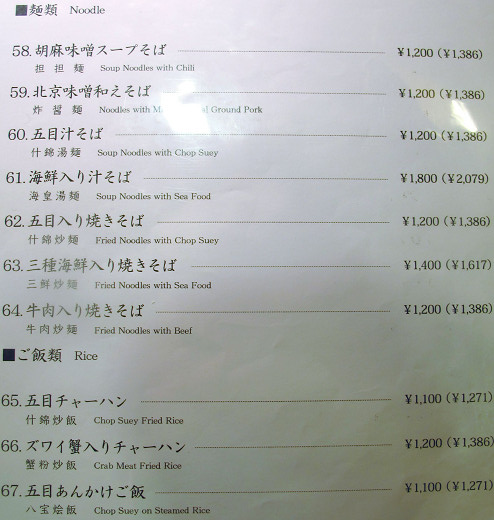 ■麺類 Noodle
58. 胡麻味噌スープそば ¥1,200 (¥1,386)
担担麺 Soup Noodles with Chili
59. 北京味噌和えそば ¥1,200 (¥1,386)
炸醤麺 Noodles with Ground Pork
60. 五目汁そば ¥1,200 (¥1,386)
什錦湯麺 Soup Noodles with Chop Suey
61. 海鮮入り汁そば ¥1,800 (¥2,079)
海皇湯麺 Soup Noodles with Sea Food
62. 五目入り焼きそば ¥1,200 (¥1,386)
什錦炒麺 Fried Noodles with Chop Suey
63. 三種海鮮入り焼きそば ¥1,400 (¥1,617)
三鮮炒麺 Fried Noodles with Sea Food
64. 牛肉入り焼きそば ¥1,200 (¥1,386)
牛肉炒麺 Fried Noodles with Beef
■ご飯類 Rice
65. 五目チャーハン ¥1,100 (¥1,271)
什錦炒飯 Chop Suey Fried Rice
66. ズワイ蟹入りチャーハン ¥1,200 (¥1,386)
蟹粉炒飯 Crab Meat Fried Rice
67. 五目あんかけご飯 ¥1,100 (¥1,271)
八宝烩飯 Chop Suey on Steamed Rice